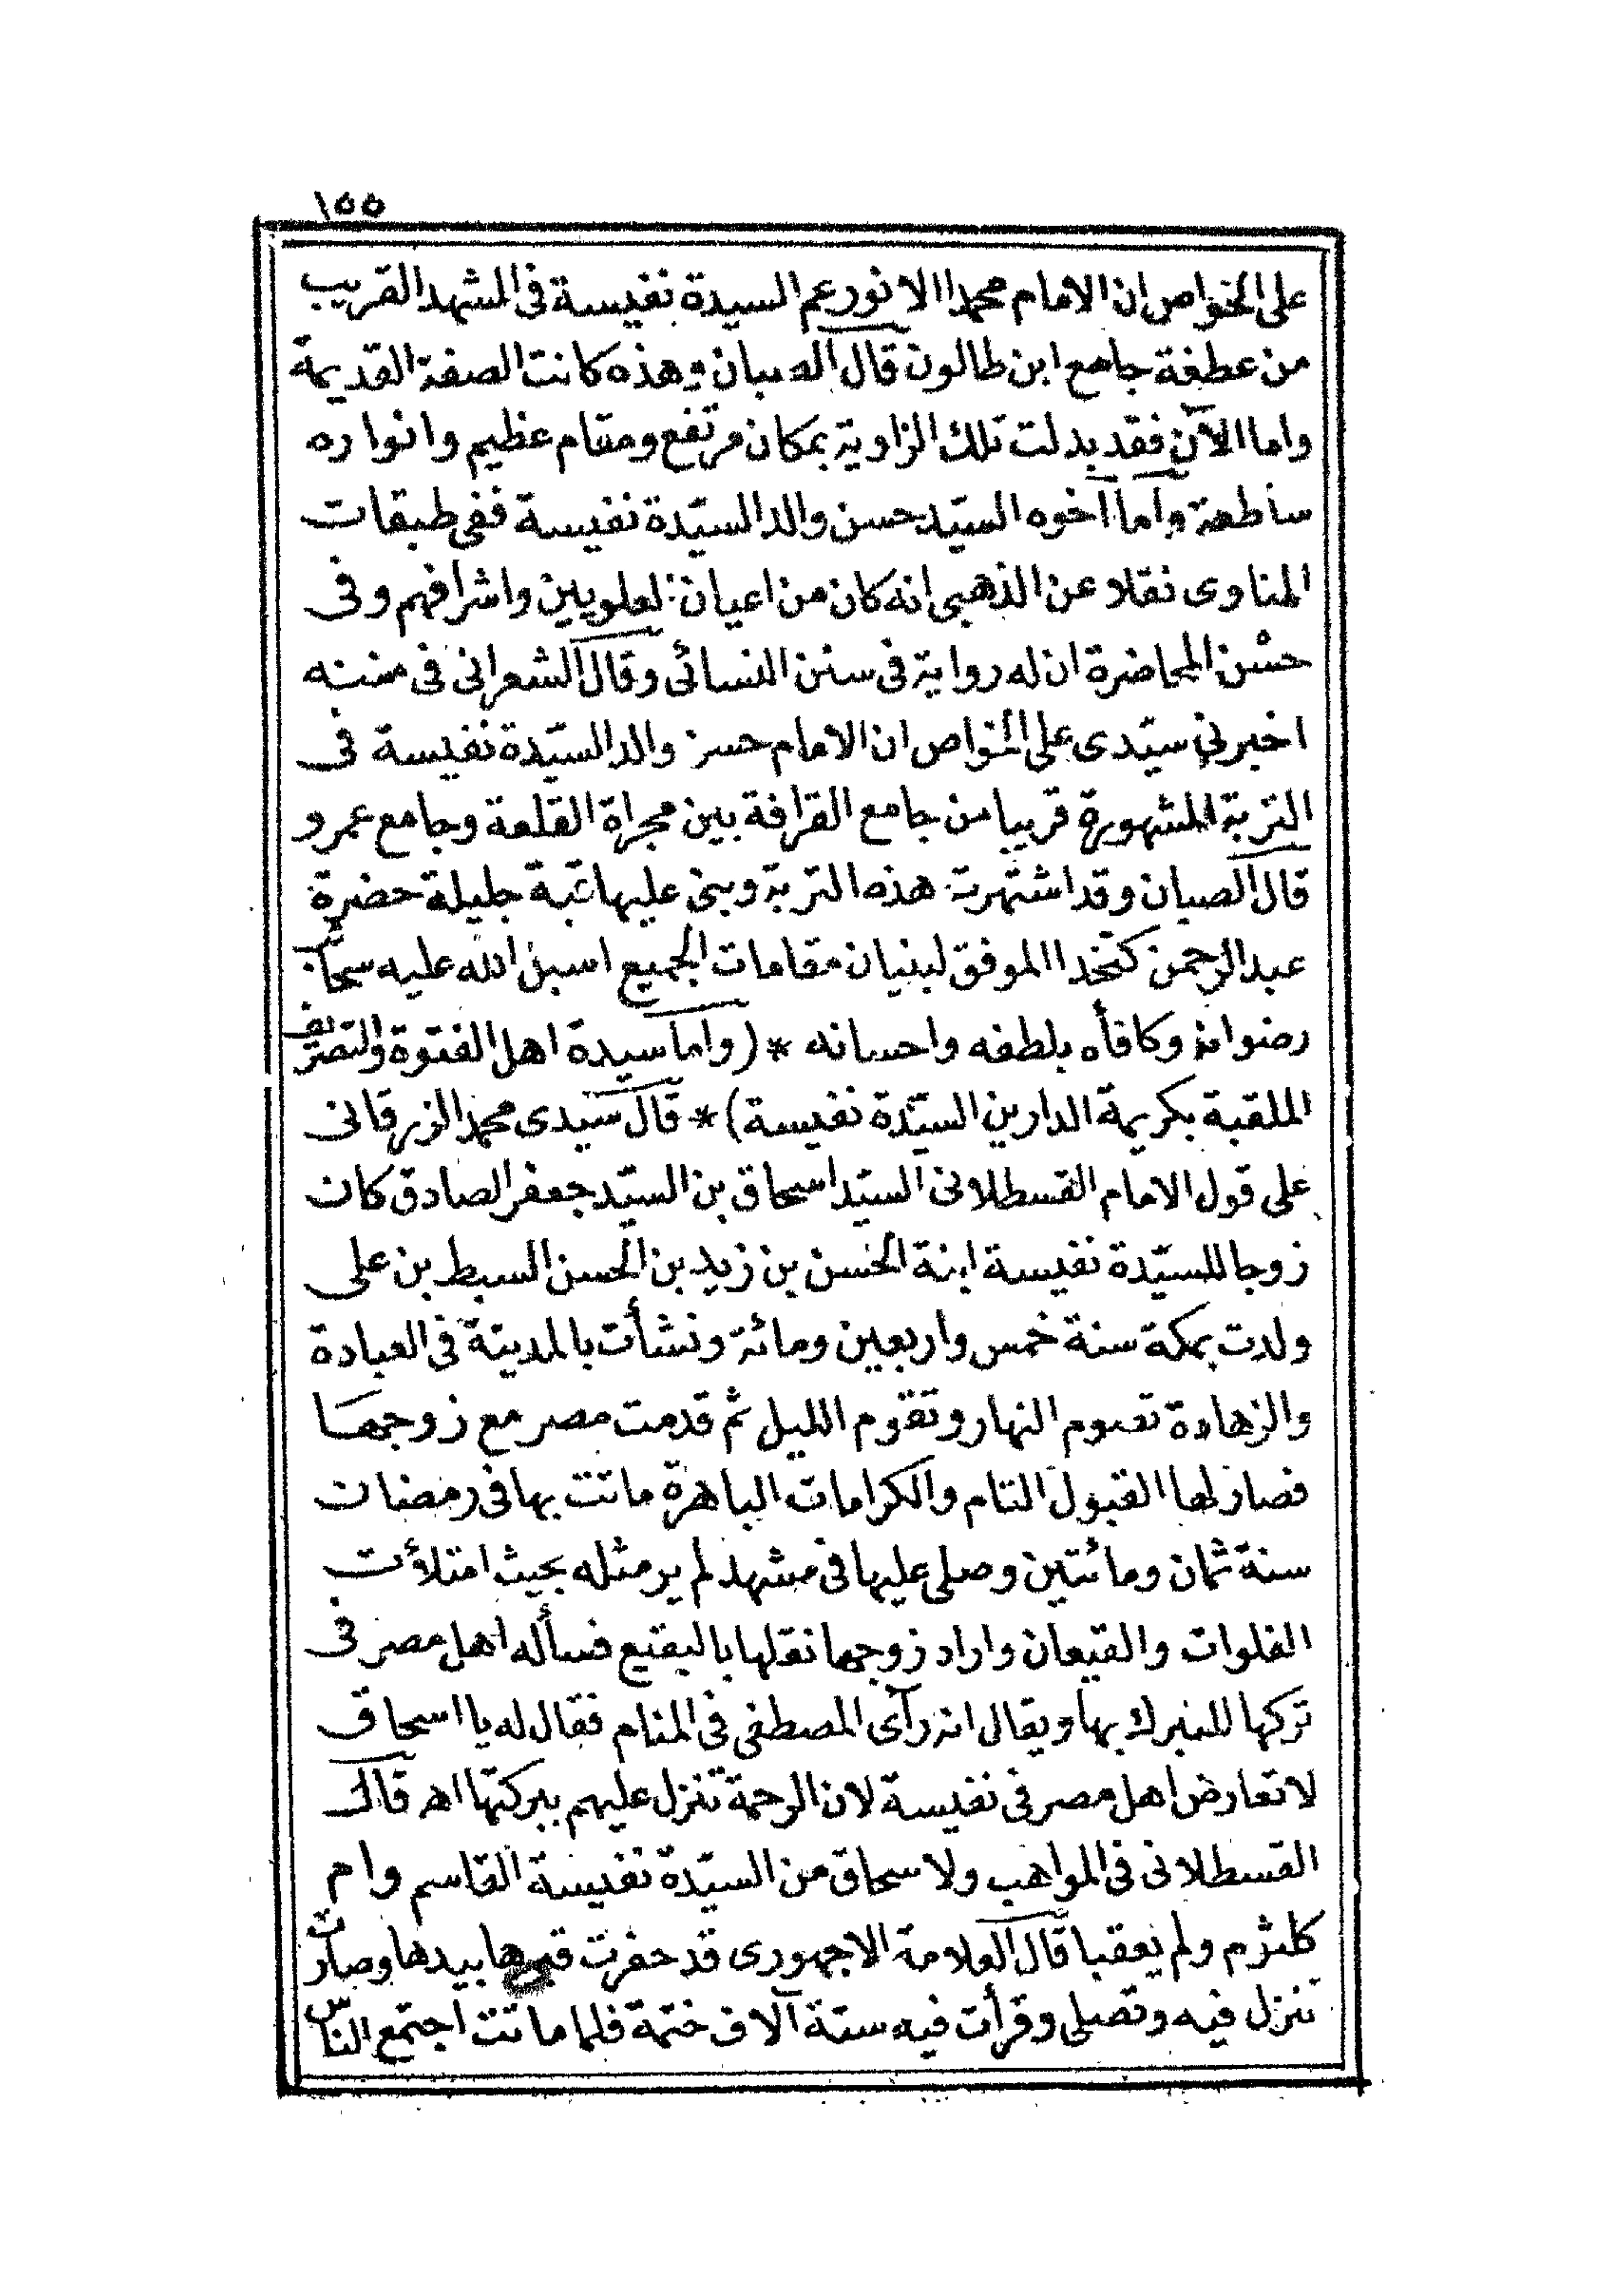 ١٥٥
على الخواص ان الامام محمدا الانور عم السيدة نفيسة فى المشهد القريب
من عطفة جامع ابن طالون قال الصبان وهذه كانت الصفة القديمة
واما الآن فقد بدلت تلك الزاوية بمكان مرتفع ومقام عظيم وانواره
ساطعة وأما أخوه السيّد حسن والد السيّدة نفيسة ففى طبقات
المناوى نقلا عن الذهبى انه كان من اعيان العلويين واشرافهم وفى
حسْن المحاضرة ان له رواية فى سنن النسائى وقال الشعرانى فى مننه
اخبرنى سيّدى على الخواص ان الامام حسن والد السيّدة نفيسة فى
التربة المشهورة قريبا من جامع القرافة بين مجراة القلعة وجامع عمرو
قال الصبان وقد اشتهرت هذه التربة وبنى عليها قبة جليلة حضرة
عبد الرحمن كتخدا الموفق لبنيان مقامات الجميع اسبل الله عليه سحائب
رضوانه وكافأه بلطفه واحسانه * (واما سيدة اهل الفتوة والتصريف
الملقبة بكريمة الدارين السيّدة نفيسة) * قال سيدى محمد الزرقانى
على قول الامام القسطلانى السيّد اسحاق بن السيّد جعفر الصادق كان
زوجا للسيّدة نفيسة ابنة الحسن بن زيد بن الحسن السبط بن على
ولدت بمكة سنة خمس واربعين ومائة ونشأت بالمدينة فى العبادة
والزهادة تصوم النهار وتقوم الليل ثم قدمت مصر مع زوجها
فصار لها القبول التام والكرامات الباهرة ماتت بها فى رمضان
سنة ثمان ومائتين وصلى عليها فى مشهد لم ير مثله بحيث امتلأت
الفلوات والقيعان واراد زوجها نقلها بالبقيع فسأله اهل مصر فى
تركها للتبرك بها ويقال انه رأى المصطفى فى المنام فقال له يا اسحاق
لا تعارض اهل مصر فى نفيسة لان الرحمة تنزل عليهم ببركتها اهـ قال
القسطلانى فى المواهب ولاسحاق من السيّدة نفيسة القاسم وام
كلثوم ولم يعقبا قال العلامة الاجهورى قد حفرت قبرها بيدها وصارت
تنزل فيه وتصلى وقرأت فيه ستة آلاف ختمة فلما ماتت اجتمع الناس